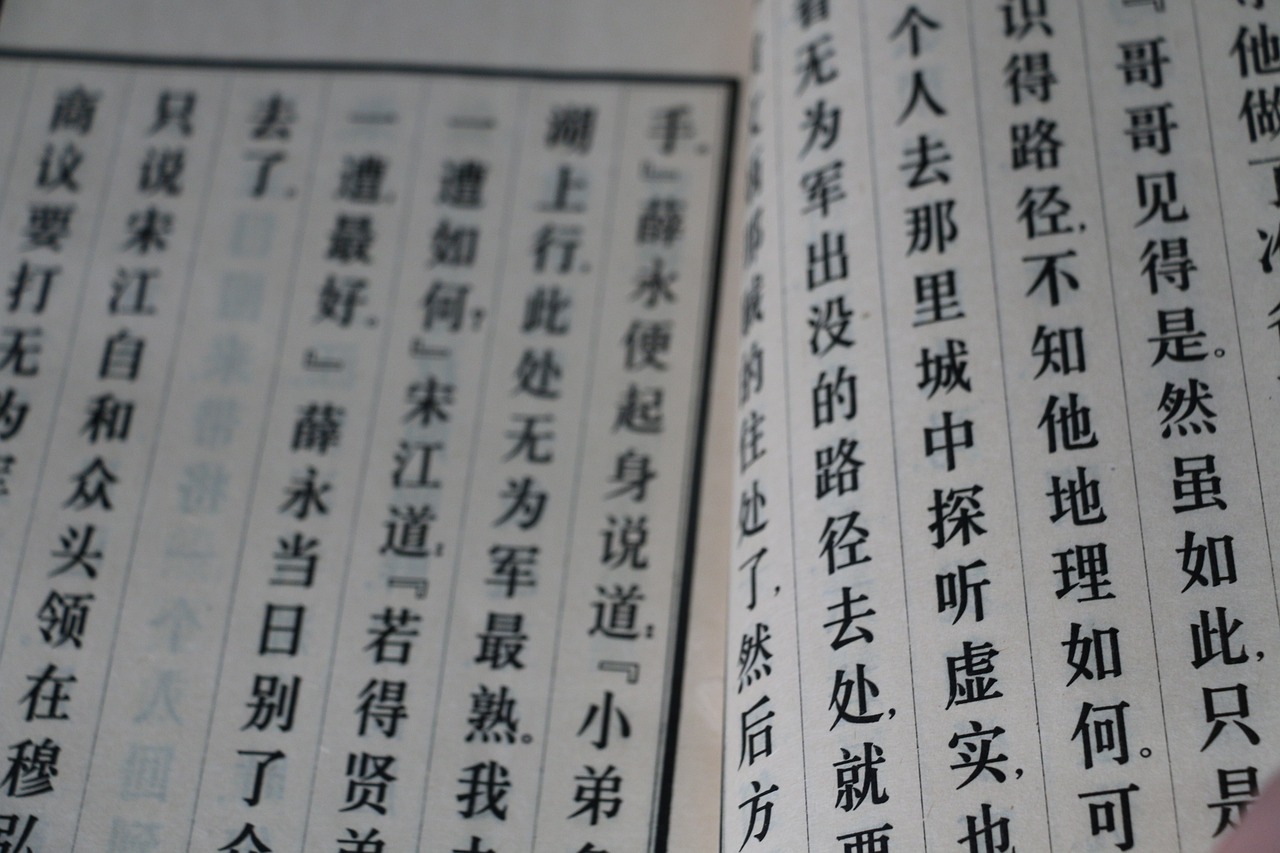 他做了
『哥哥见得是。然虽如此,只是
识得路径,不知他地理如何。可
个人去那里城中探听虚实,也
看无为军出没的路径去处,就要
的住处了,然后方
手。』薛永便起身说道:『小弟
湖上行。此处无为军最熟。我
一遭如何,』宋江道:『若得贤弟
一遭。最好。』薛永当日别了
去了。
只说宋江自和众头领在穆弘
商议要打无为军